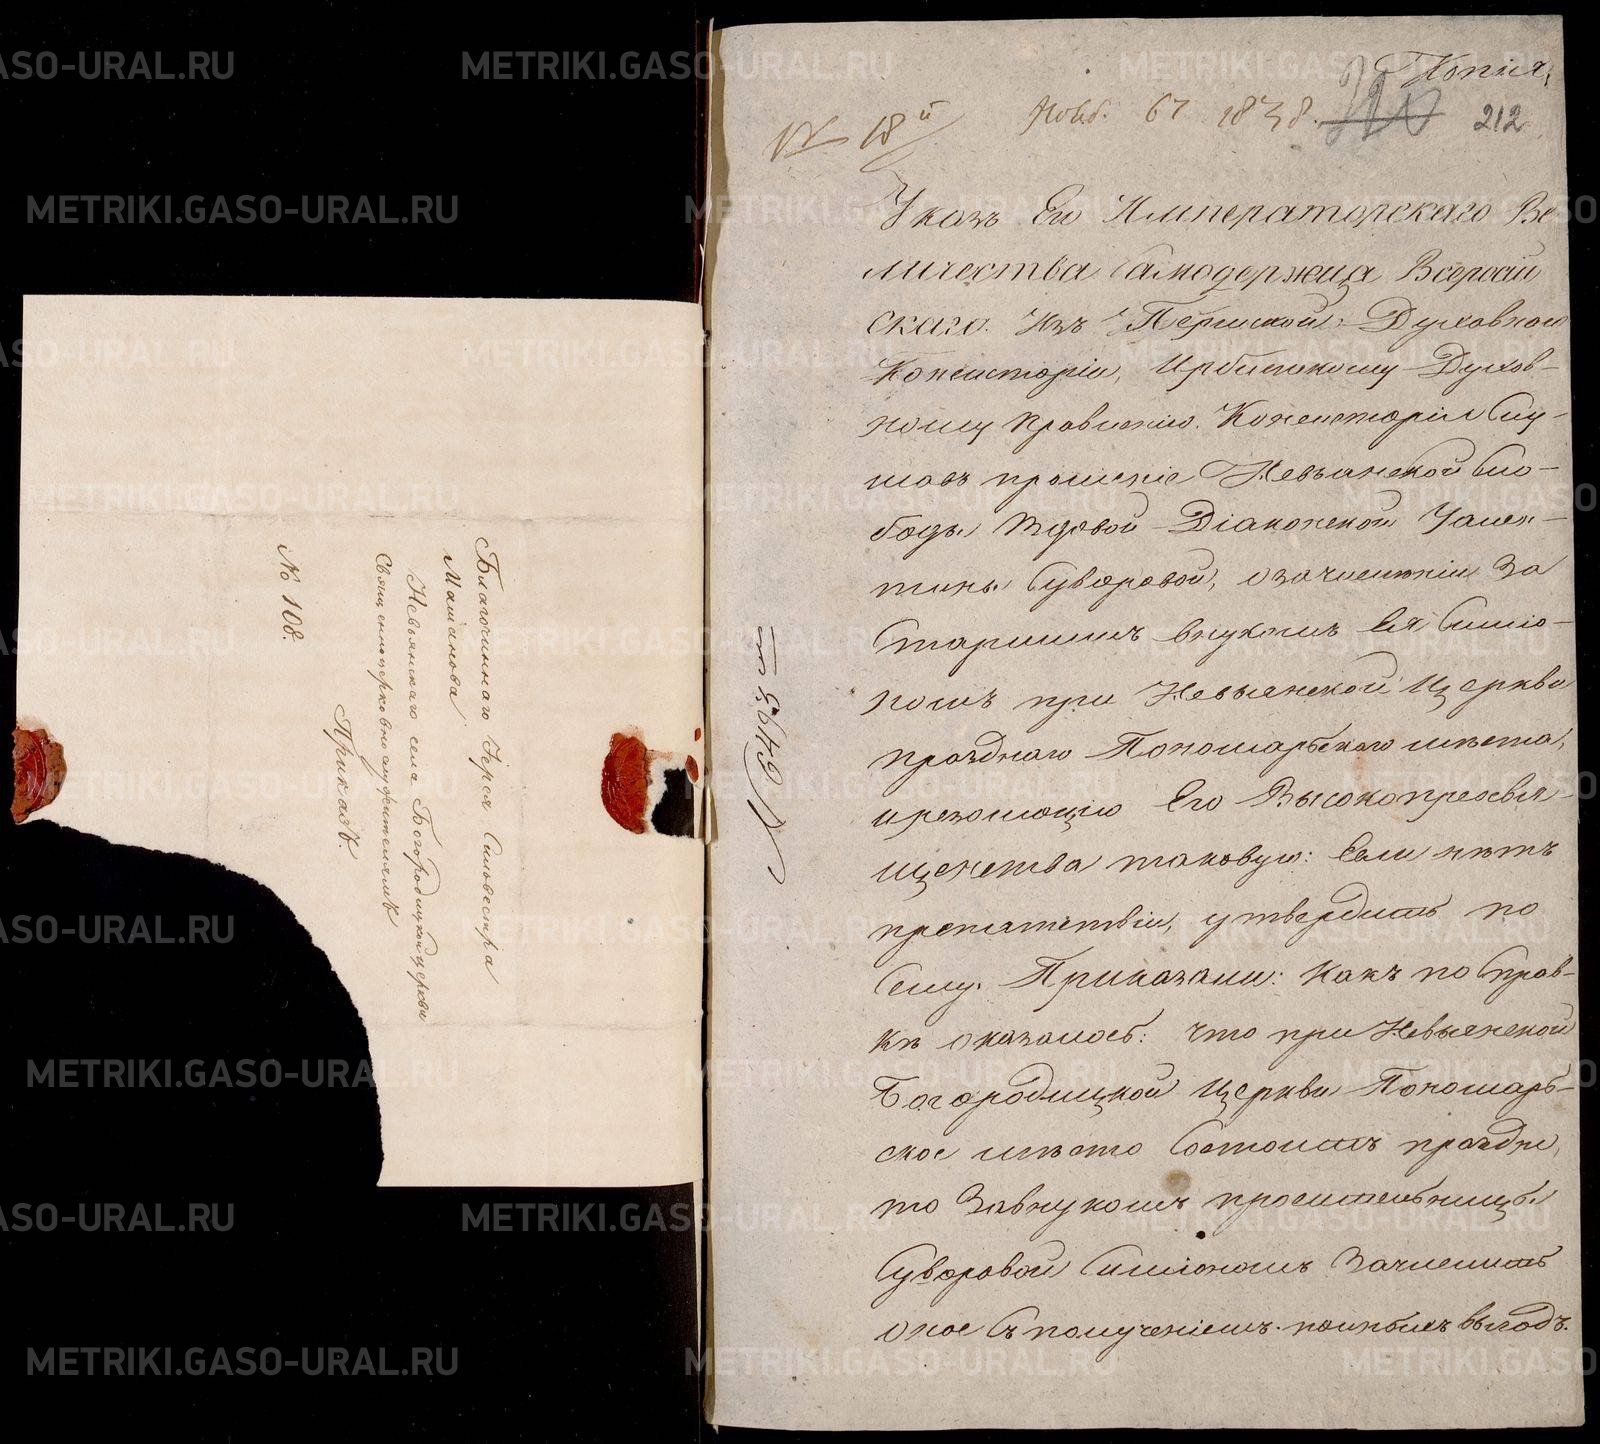 Благочиннаго Іерея Сильвестра
Машанова
Невьянскаго села Богородицкой церкви
Священноцерковнослужителямъ
Приказъ.
№ 108.
Копія
№ 18й
1838.
212
Указъ Его Императорскаго Ве
личества Самодержца Всероссій
скаго. Изъ Пермской Духовной
Консисторіи, Ирбитскому Духов-
ному Правленію. Консисторія Слу-
шавъ прошеніе Невьянской Сло-
боды Вдовой Діаконской
Суворовой, о зачисленіи За
Старшимъ внукомъ Ея Симіо-
номъ при Невьянской Церкви
празднаго Пономарскаго мѣста,
и резолюцію Его Высокопреосвя-
щенства таковую: Если нѣтъ
препятствія, утвердить по
Сему. Приказали: Какъ по Справ-
кѣ оказалось: что при Невьянской
Богородицкой Церкви Пономарь-
ское мѣсто Состоитъ праздно,
то За внукомъ просительницы
Суворовой Симіономъ Зачислить
оное Съ полученіемъ выгодъ.